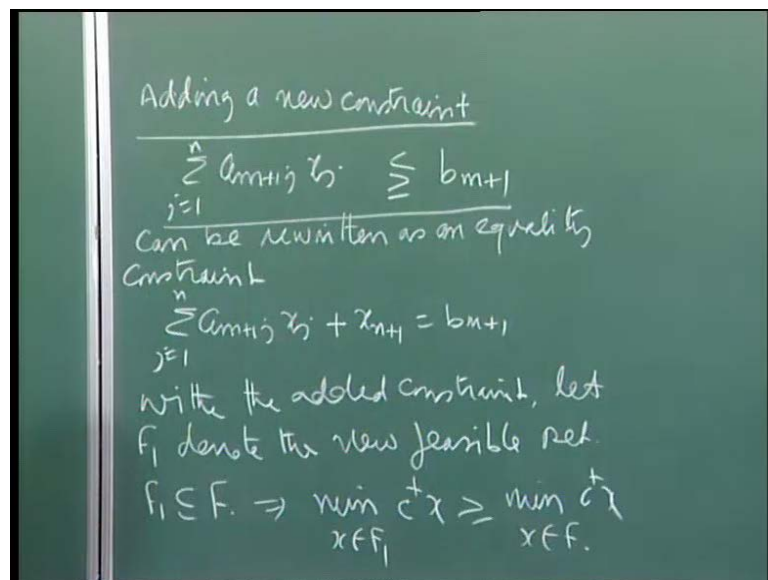 Adding a new constraint
n
Σ a_{m+1 j} x_j ≤ ≥ b_{m+1}
j=1
can be rewritten as an equality
constraint
n
Σ a_{m+1 j} x_j + x_{n+1} = b_{m+1}
j=1
withe the added constraint, let
F_1 denote the new feasible set.
F_1 ⊆ F. ⇒ min c^t x ≥ min c^t x
x∈F_1 x∈F.